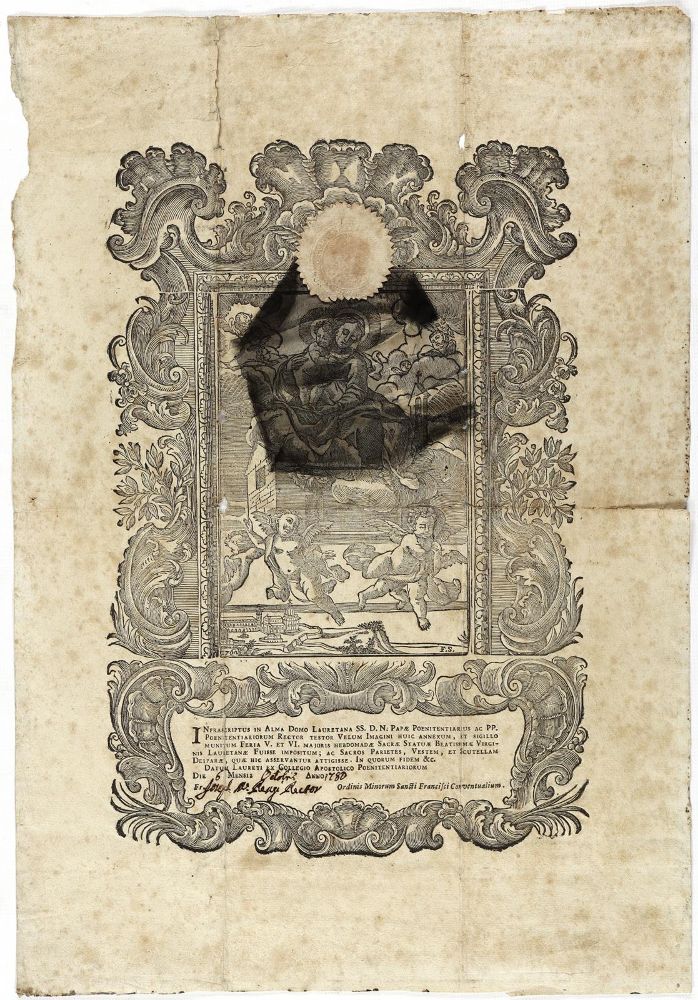 F.S.
INFRASCRIPTUS IN ALMA DOMO LAURETANA SS. D. N: PAPÆ POENITENTIARIUS AC PP.
POENITENTIARIORUM RECTOR TESTOR VELUM IMAGINI HUIC ANNEXUM, ET SIGILLO
MUNITUM FERIA V. ET VI. MAJORIS HEBDOMADÆ SACRÆ STATUÆ BEATISSIMÆ VIRGI-
NIS LAURETANÆ FUISSE IMPOSITUM; AC SACROS PARIETES, VESTEM, ET SCUTELLAM
DEIPARÆ, QUÆ HIC ASSERVANTUR ATTIGISSE. IN QUORUM FIDEM &c.
DATUM LAURETI EX COLLEGIO APOSTOLICO POENITENTIARIORUM
DIE 6 MENSIS 8bris ANNO 1780
Fr Joseph Ma Rector Ordinis Minorum Sancti Francisci Conventualium.